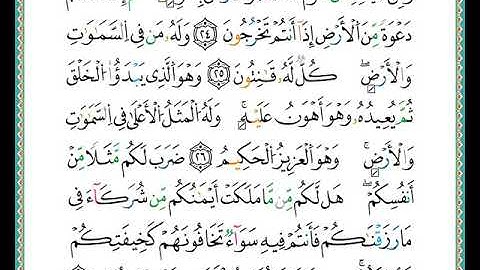 دَعْوَةً مِّنَ ٱلْأَرْضِ إِذَآ أَنتُمْ تَخْرُجُونَ ٢٤ وَلَهُۥ مَن فِى ٱلسَّمَٰوَٰتِ
وَٱلْأَرْضِۖ كُلٌّ لَّهُۥ قَٰنِتُونَ ٢٥ وَهُوَ ٱلَّذِى يَبْدَؤُا۟ ٱلْخَلْقَ
ثُمَّ يُعِيدُهُۥ وَهُوَ أَهْوَنُ عَلَيْهِۚ وَلَهُ ٱلْمَثَلُ ٱلْأَعْلَىٰ فِى ٱلسَّمَٰوَٰتِ
وَٱلْأَرْضِۚ وَهُوَ ٱلْعَزِيزُ ٱلْحَكِيمُ ٢٦ ضَرَبَ لَكُم مَّثَلًا مِّنْ
أَنفُسِكُمْۖ هَل لَّكُم مِّن مَّا مَلَكَتْ أَيْمَٰنُكُم مِّن شُرَكَآءَ فِى
مَا رَزَقْنَٰكُمْ فَأَنتُمْ فِيهِ سَوَآءٌ تَخَافُونَهُمْ كَخِيفَتِكُمْ